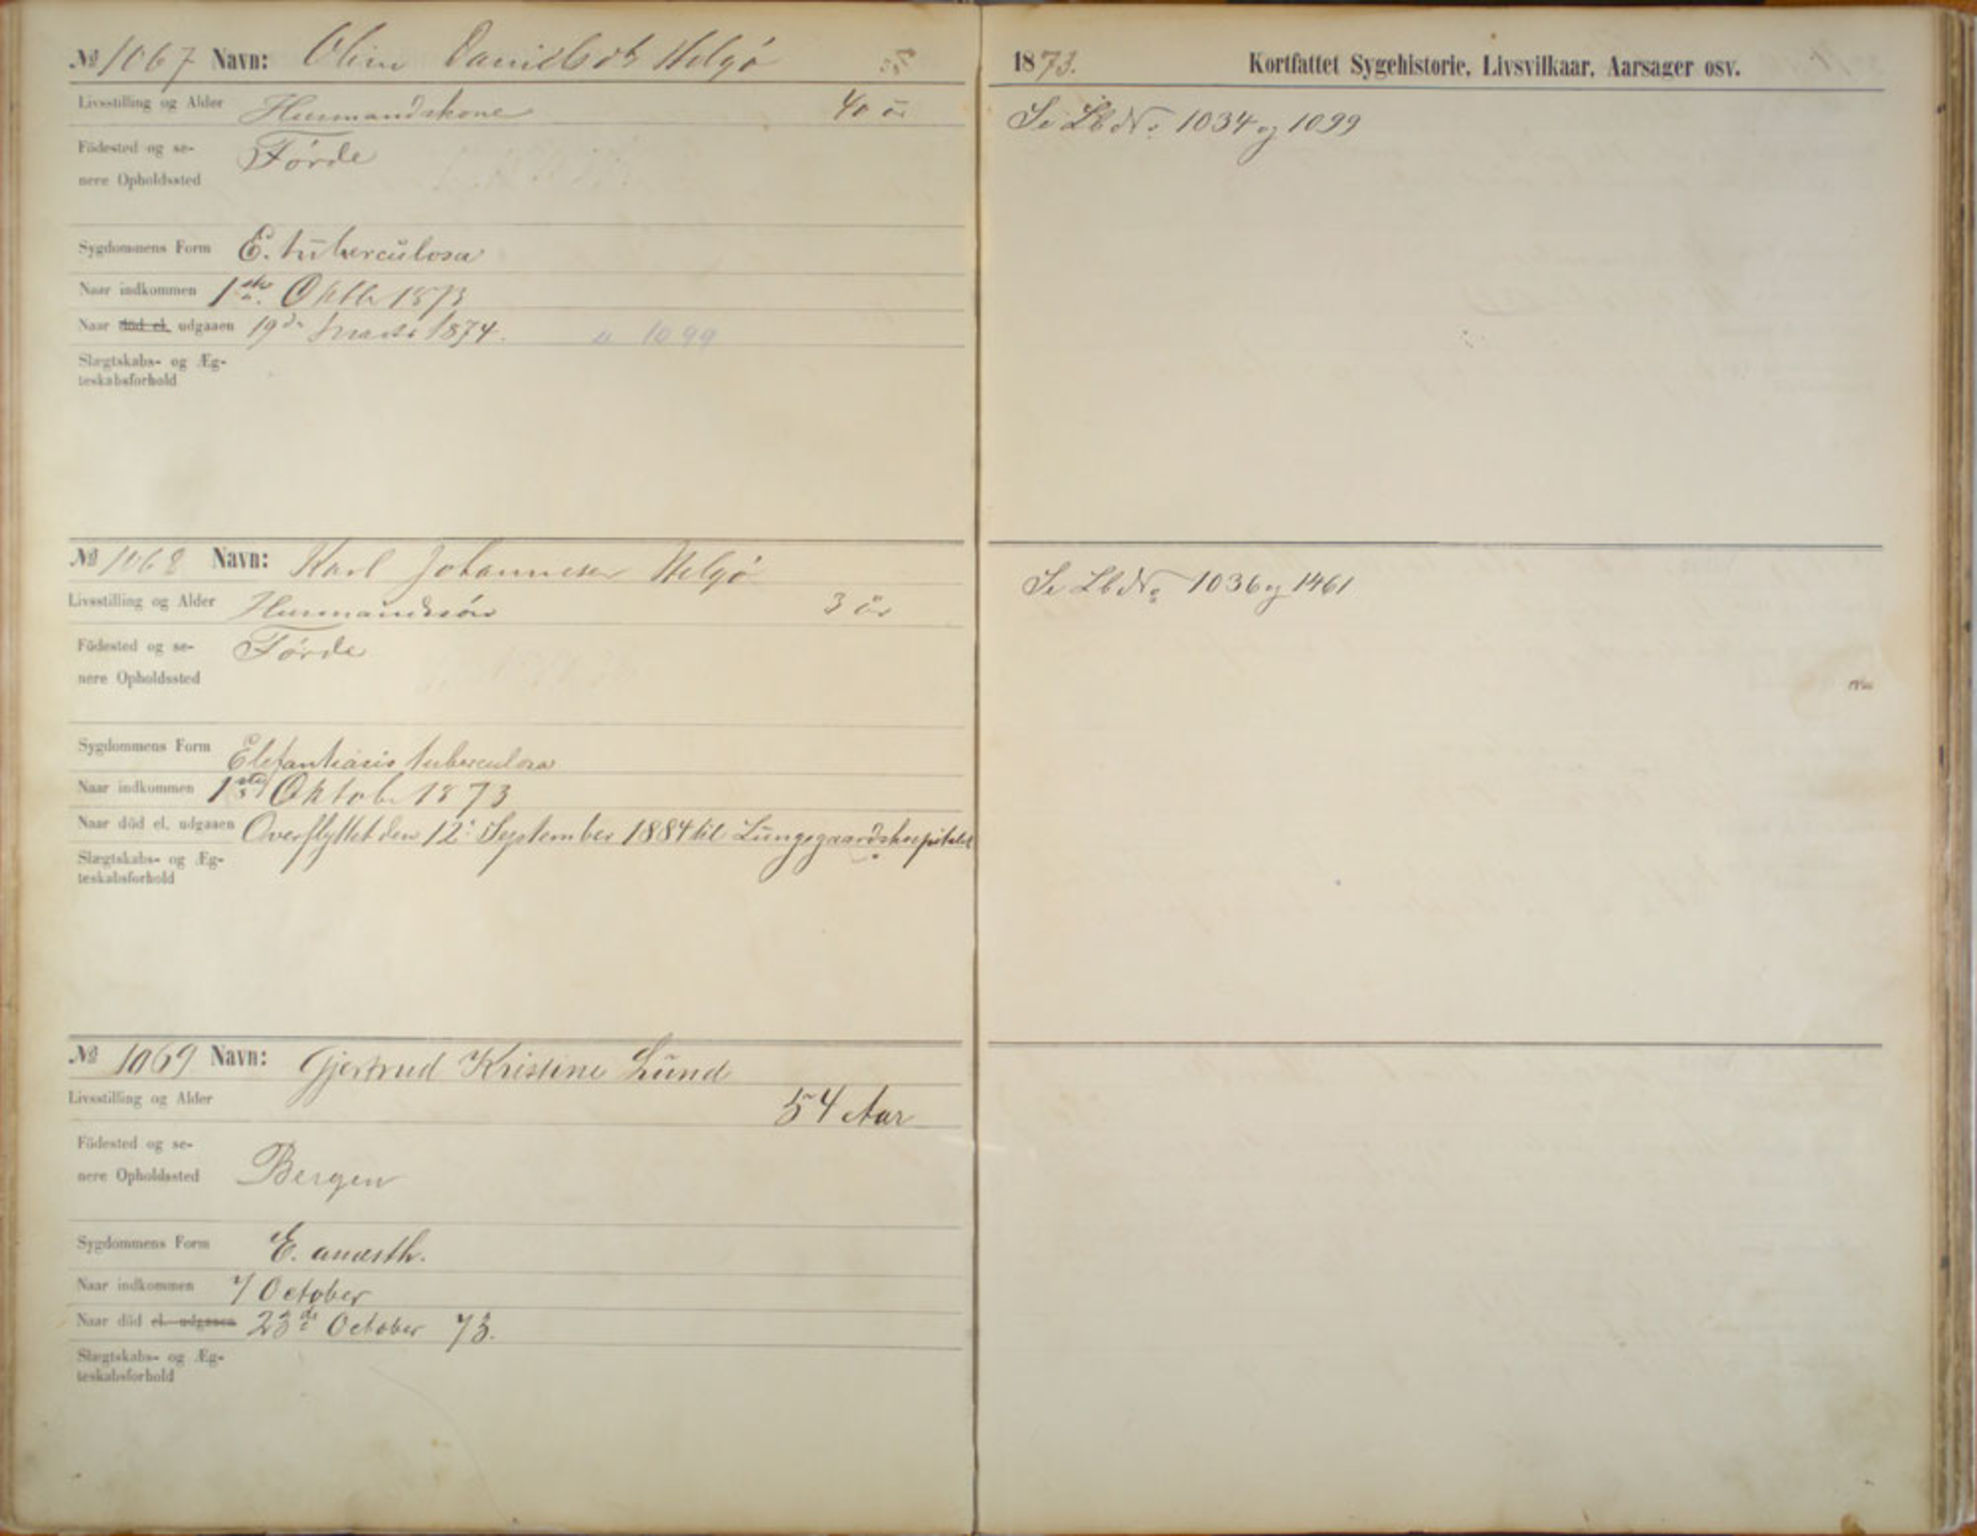 № 1067 Navn: Oline Danielsdtr Helgö
Livsstilling og Alder Husmandskone 40 år
Födested og se-
nere Opholdssted Förde
Sygdommens Form E. tuberculosa
Naar indkommen 1ste Oktbr 1873
Naar död el. udgaaen 19de Marts 1874. 1099
Slægtskabs- og Æg-
teskabsforhold
№ 1068 Navn: Karl Johannesen Helgö
Livsstilling og Alder Husmandssön 3 år
Födested og se-
nere Opholdssted Förde
Sygdommens Form Elefantiasis tuberculosa
Naar indkommen 1ste Oktob. 1873
Naar död el. udgaaen Overflyttet den 12' September 1884 til Lungegaardshospitalet
Slægtskabs- og Æg-
teskabsforhold
№ 1069 Navn: Gjertrud Kristine Lund
Livsstilling og Alder 54 Aar
Födested og se-
nere Opholdssted Bergen
Sygdommens Form E. anæsth.
Naar indkommen 4/ October
Naar död el. udgaaen 23de October 73.
Slægtskabs- og Æg-
teskabsforhold
1873. Kortfattet Sygehistorie, Livsvilkaar, Aarsager osv.
Se Lb No 1034 og 1099
Se Lb No 1036 og 1461